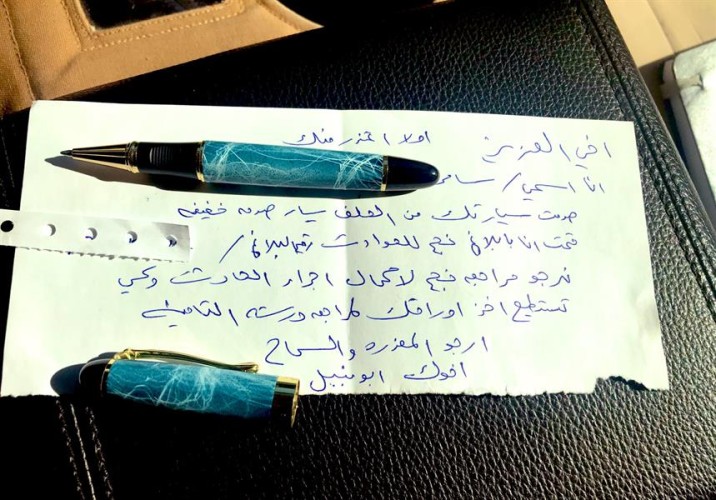 اخي العزيز اولا اعتذر منك
انا اسمي / سامي
صدمت سيارتك من الخلف يسار صدمه خفيفه
قمت انا بابلاغ نجم للحوادث رقم البلاغ /
نرجو مراجعه نجم لاكمال اجراء الحادث وكي
تستطيع اخذ اوراقك لمراجعه ورشه التامين
ارجو المعذره والسماح
اخوك ابو نبيل